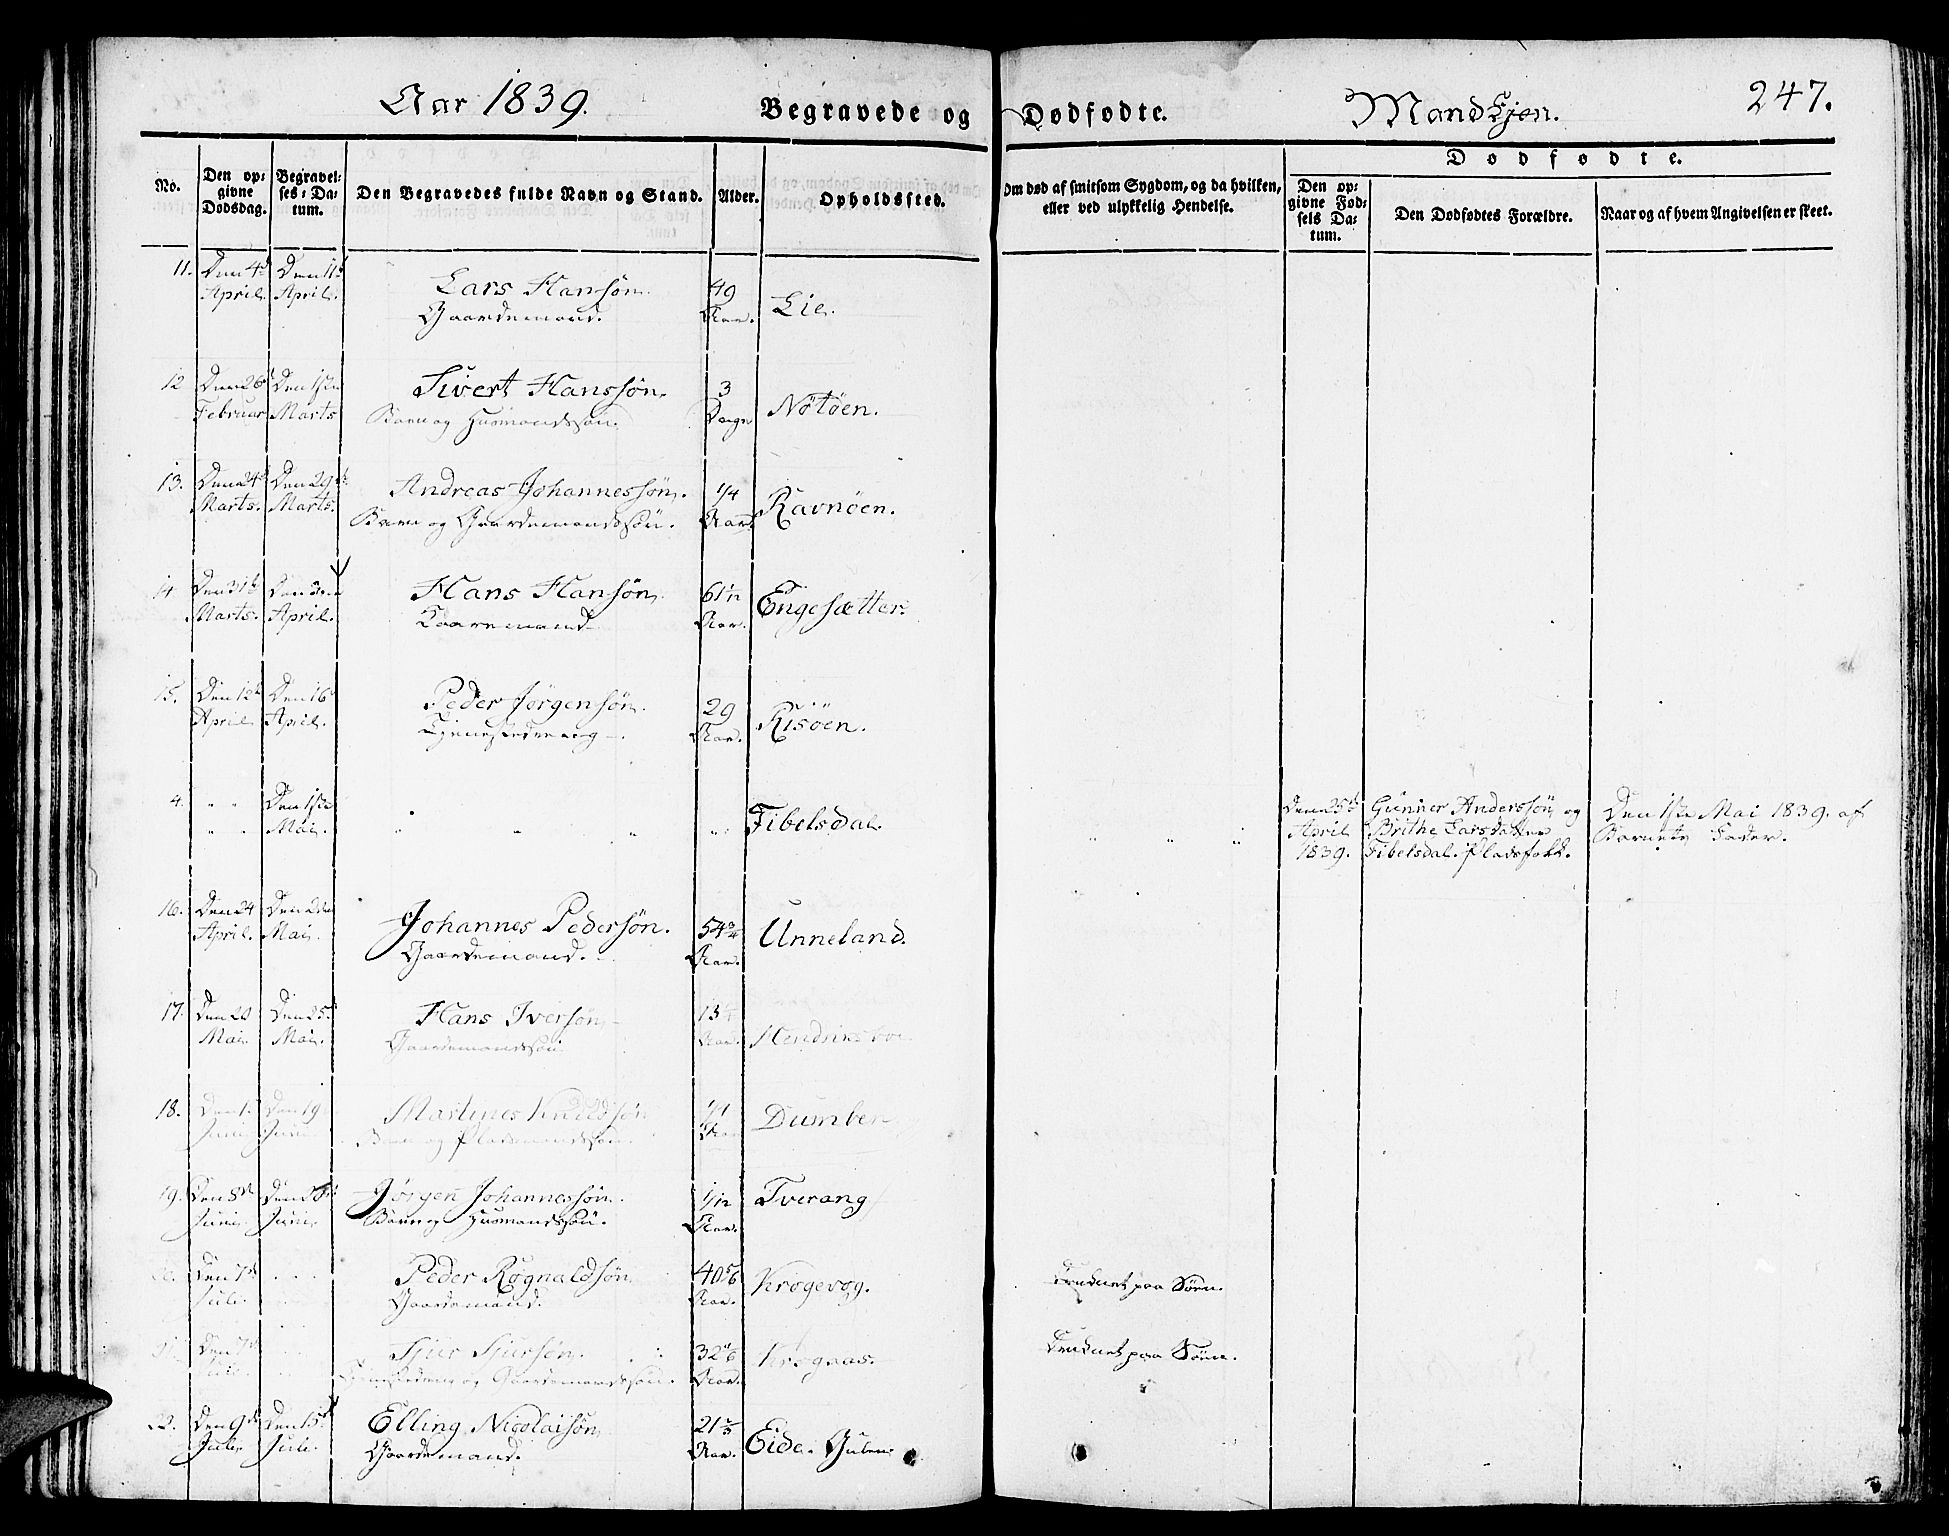 Aar 1839.
Begravede og Dødfødte.
Mandkjøn.
247.
No.
Den op-
givne
Dødsdag.
Begravel-
ses-Da-
tum.
Den Begravedes fulde Navn og Stand.
Alder.
Opholdssted.
Om død af smitsom Sygdom, og da hvilken,
eller ved ulykkelig Hendelse.
Dødfødte.
Den op-
givne Fød-
sels Da-
tum.
Den Dødfødtes Forældre.
Naar og af hvem Angivelsen er skeet.
11. Den 4de Den 11te Lars Hansøn. 49 Lie.
April. April. Gaardemand. Aar.
12 Den 26d Den 1ste Sivert Hanssøn. 3 Nötöen.
Februar Marts Barn og Huusmandssøn. Dage
13. Den 24d Den 29de Andreas Johannessøn. 1/4 Ravnöen.
Marts. Marts. Barn og Gaardemandssøn. Aar.
14 Den 31te Den April. Hans Hansøn. 61 1/12 Engesætter.
Marts. Kaaremand Aar.
15. Den 12te Den 16d Peder Jörgensøn. 29 Risöen.
April April. Tjenestedreng Aar.
4. " " Den 1ste " " " " Fibelsdal. " " " Den 25de Gunner Anderssøn og Den 1ste Mai 1839. af
" " Mai. April Brithe Larsdatter Barnets Fader.
1839. Fibelsdal. Pladsfolk.
16. Den 24 Den 2den Johannes Pedersøn. 54 3/4 Unneland.
April. Mai. Gaardemand. Aar.
17. Den 20 Den 25d Hans Iversøn 13 Hendriksboe
Mai. Mai. Gaardemandssøn Aar.
18. Den Den 19 Martines Knudsøn Dumben
Juni Juni Barn og Pladsmandssøn. Aar
19. Den 8de Den Jörgen Johannessøn. 1/12 Tverang
Juni. Juni. Barn og Huusmandssøn. Aar.
20. Den 7de Peder Rognaldsøn 40 5/6 Krogevog. Druknet paa Søen.
Juli. Gaardemand. Aar.
21. Den 7de Sjur Sjursøn. 32 Krognæs. Druknet paa Søen.
Juli. Tjenestedreng og Gaardemandssøn. Aar.
22. Den 9de Den 15d Elling Nicolaisøn 21 2/3 Eide. Gulen
Juli. Juli. Gaardemand. Aar.